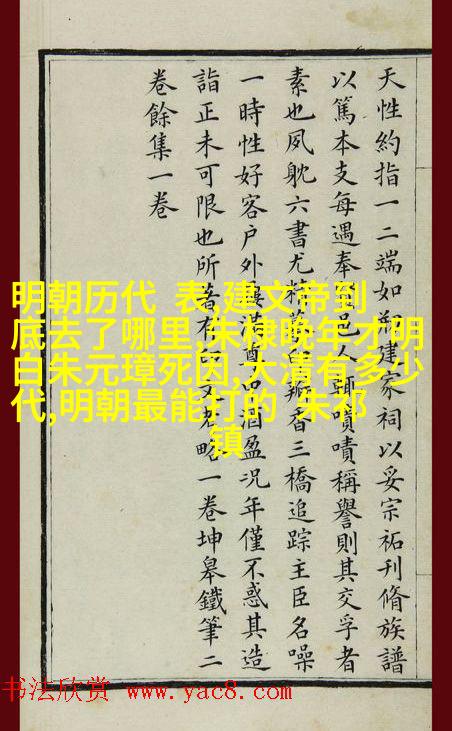 天性約指一二端如建家祠以妥宗祏刊脩族譜
以篤本支每遇奉邑人輒嘖嘖稱譽則其交孚者
素也夙躭六書尤精瓣香三橋追踪主臣名噪
一時性好客户外屨滿酒盈況年僅不惑其造
詣正未可限也所著有文考略一卷坤皋鐵筆二
卷餘集一卷
明朝历代 表,建文帝到
底去了哪里,朱棣晚年才明
白朱元璋死因,大清有多少
代,明朝最能打的 朱祁
镇
书法欣赏 www.yac8.com